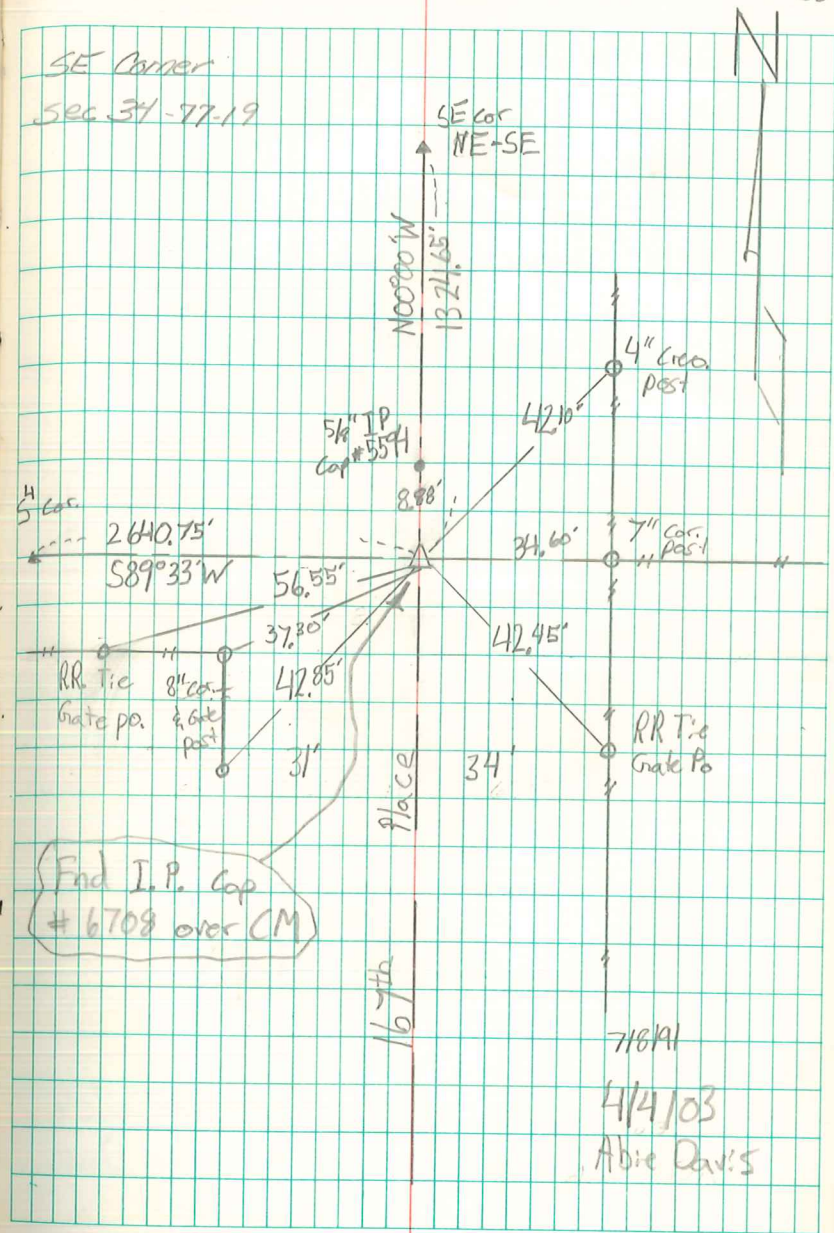 N
SE Corner
Sec 34-77-19
SE Cor
NE-SE
N00°00'W
1324.65'
4" Creo.
post
42.10'
5/8" IP
Cap #5594
8.98'
S 4 Cor.
2640.75'
S89°33'W
34.60'
7" Cor.
post
56.55'
37.30'
42.85'
42.45'
RR. Tie
Gate po.
8" Cor.
& Gate
post
31'
34'
RR Tie
Gate Po
Place
Fnd I.P. Cap
# 6708 over CM
167th
7/8/91
4/4/03
Abie Davis